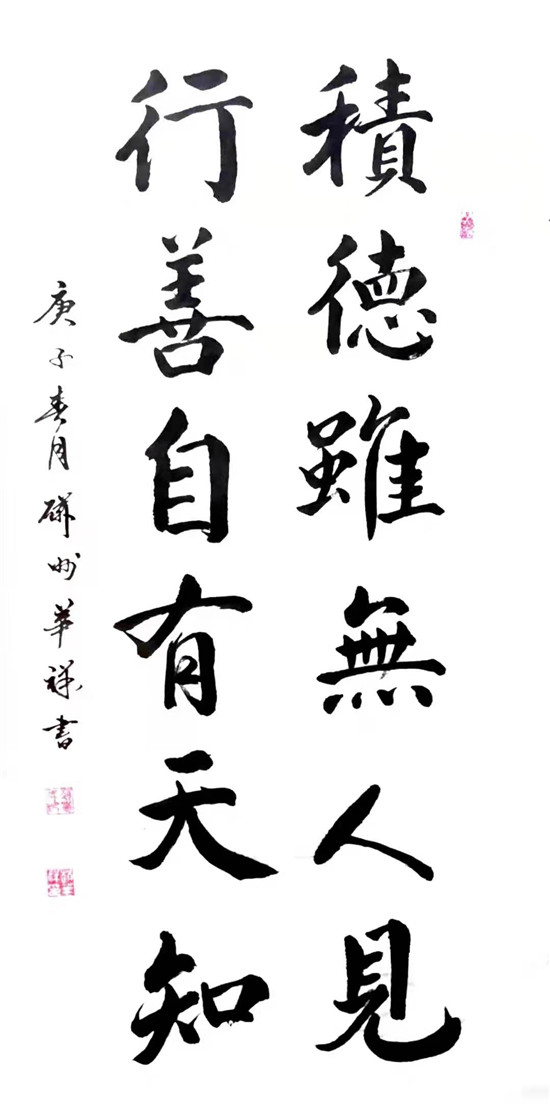 積德雖無人見
行善自有天知
庚子春月 州華祥書